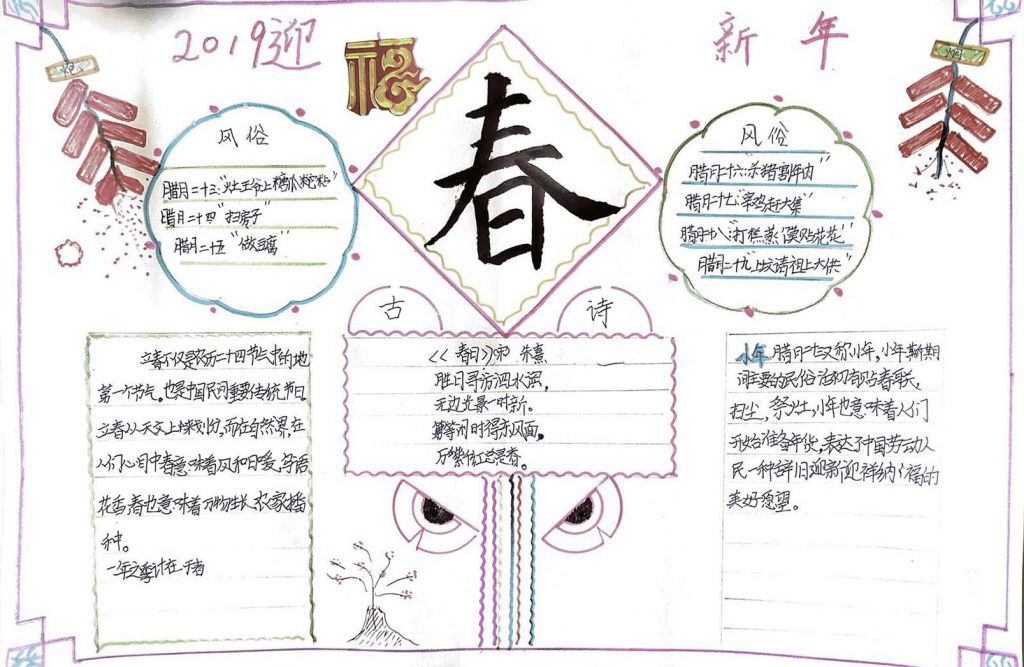 2019迎
福
新年
春
风俗
腊月二十三:“灶王爷上糖瓜粘”
腊月二十四“扫房子”
腊月二十五“做豆腐”
风俗
腊月二十六:杀猪割年肉”
腊月二十七:“宰鸡赶大集”
腊月十八:“打糕蒸馍贴花花”
腊月二十九“上坟请祖上大供”
古诗
《春日》宋 朱熹
胜日寻芳泗水滨,
无边光景一时新。
等闲时得东风面,
万紫红总是春。
立春不仅是农历二十四节气中的地
第一个节气。也是中国民间重要传统节日
立春从天文上来划分,而在自然界,在
人们心目中春意味着风和日暖,鸟语
花香,春也意味着万物生长,农家播
种。
一年之季计在于春
小年 腊月廿又称小年,小年期
间主要的民俗活动有贴春联,
扫尘,祭灶,小年也意味着人们
开始准备年货,表达了中国劳动人
民一种辞旧迎新迎祥纳福的
美好愿望。